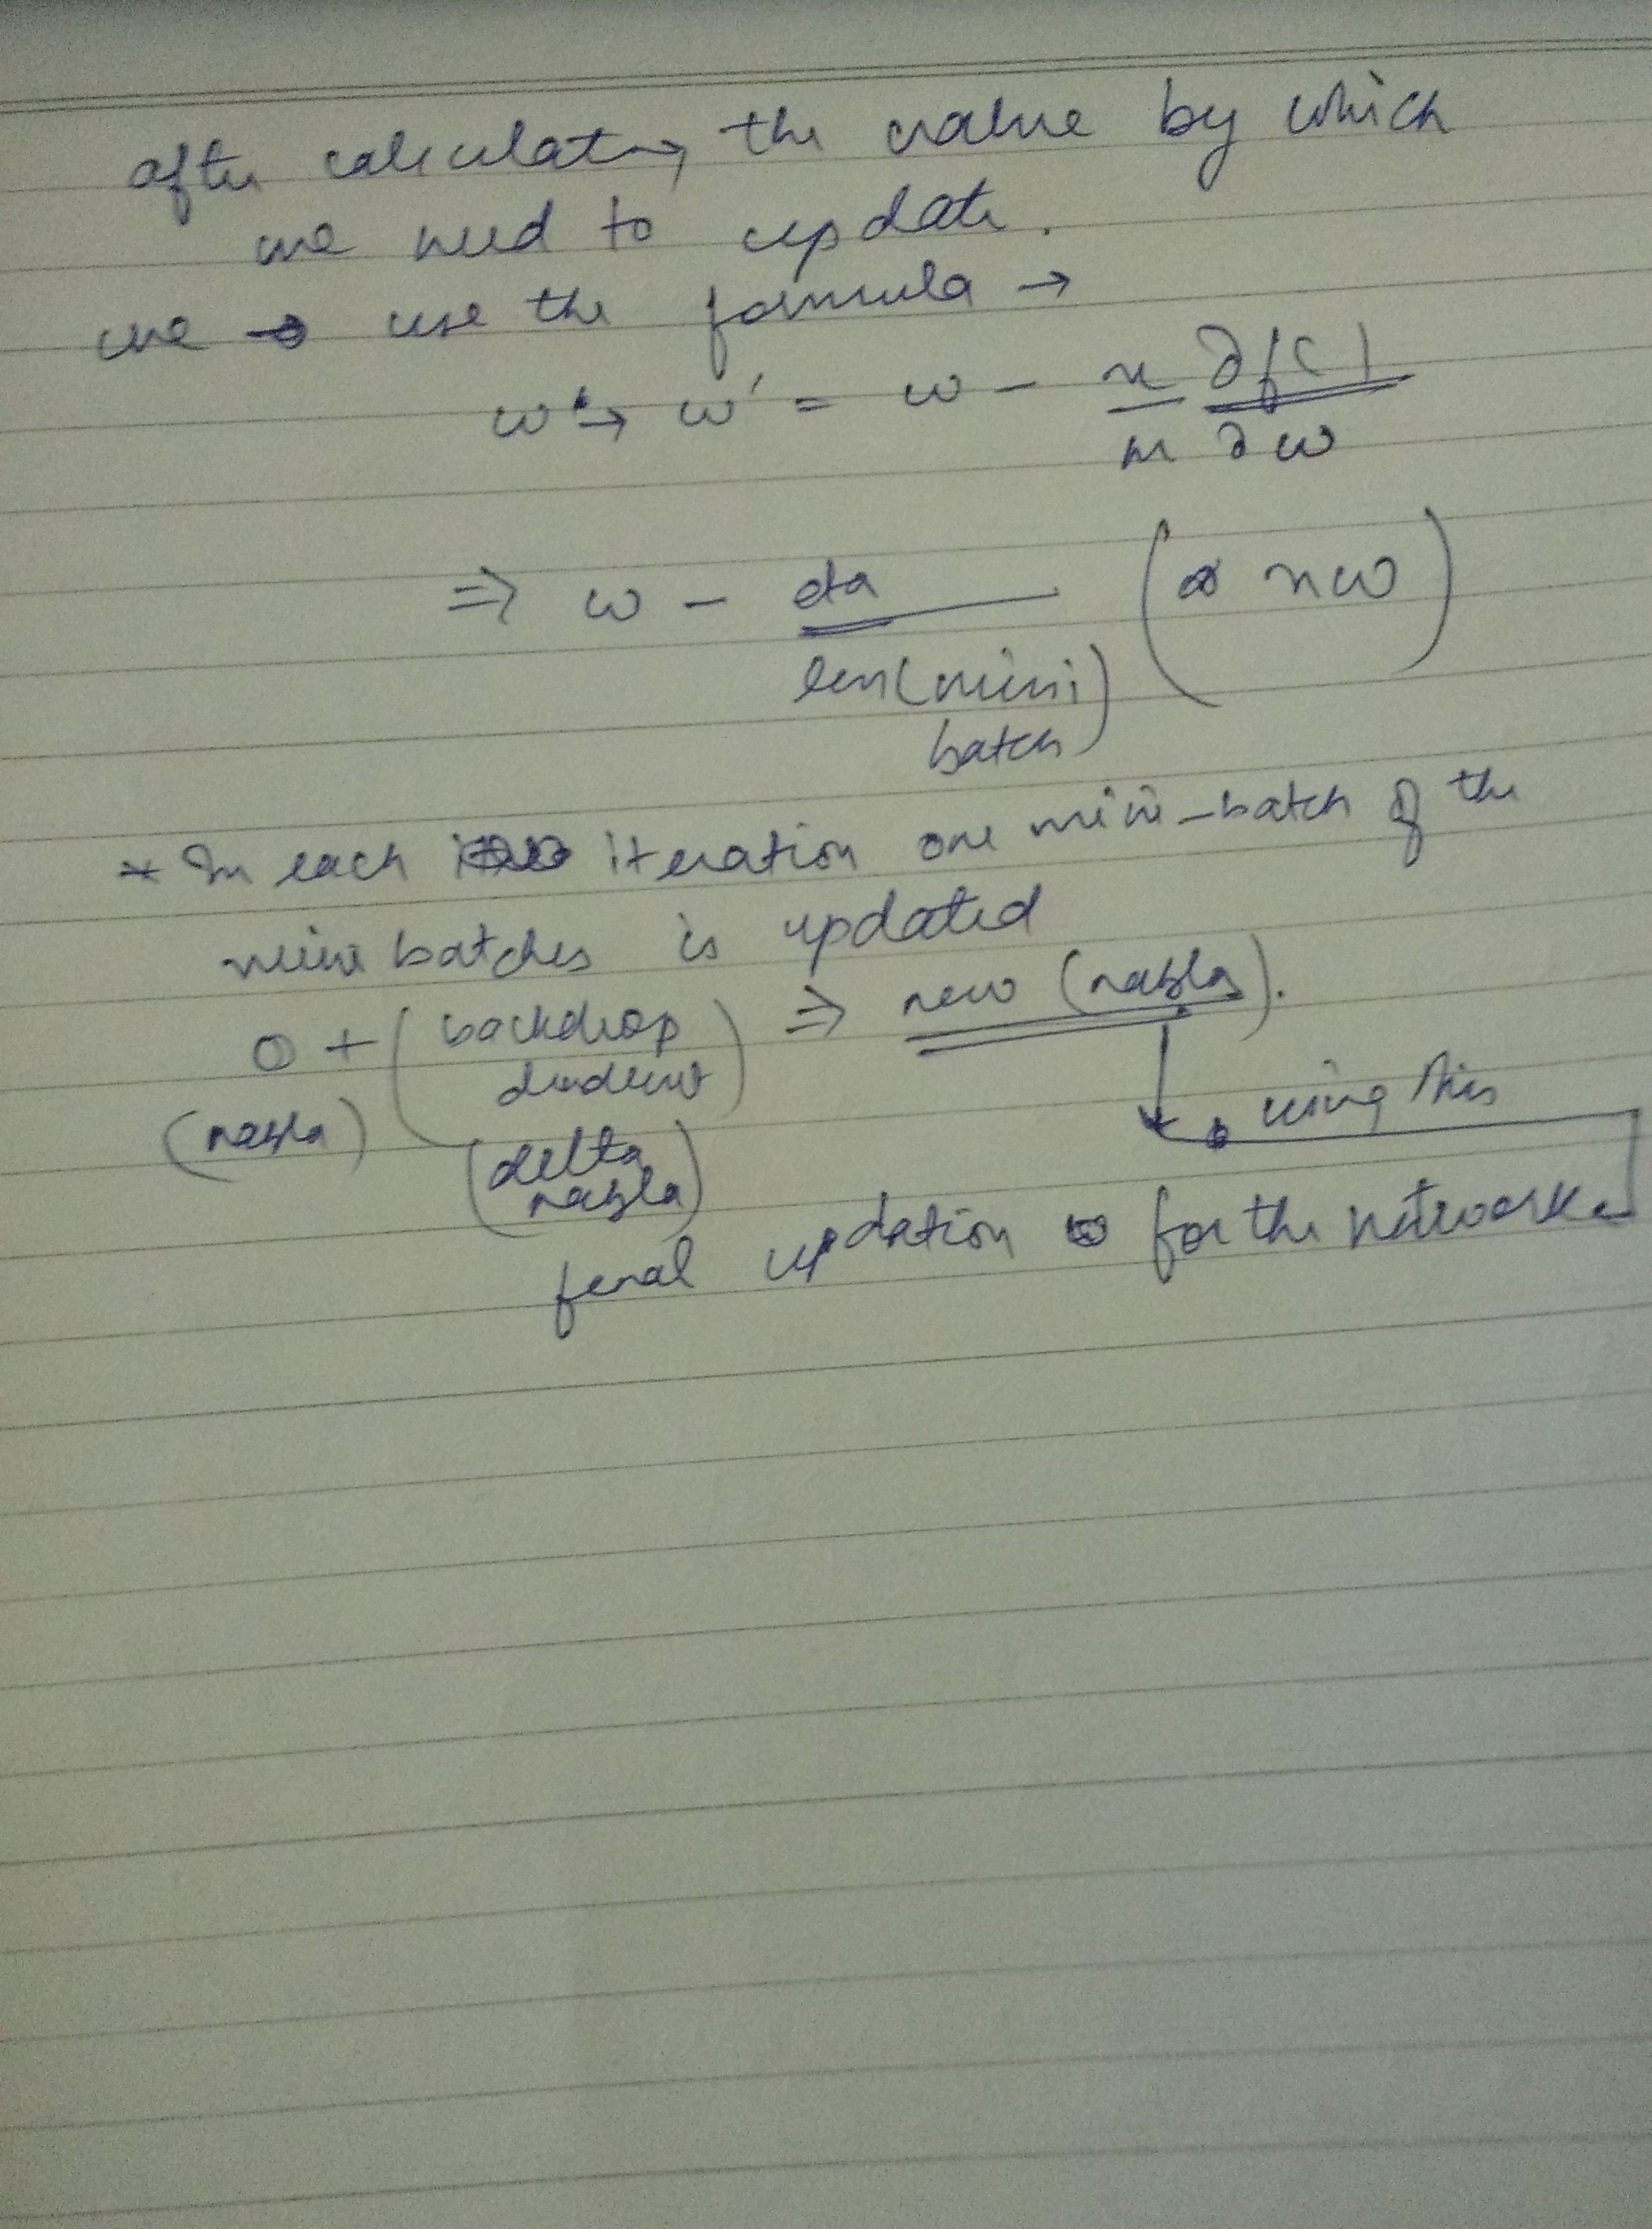 after calculating the value by which
we need to update.
we use the formula →
w → w' = w - n/m ∂f(c)/∂w
⇒ w - eta/len(mini batch) (nw)
* In each iteration one mini-batch of the
mini batches is updated
0 + (backdrop ⇒ new (nabla).
(nabla) (delta nabla) using this
final updation for the network